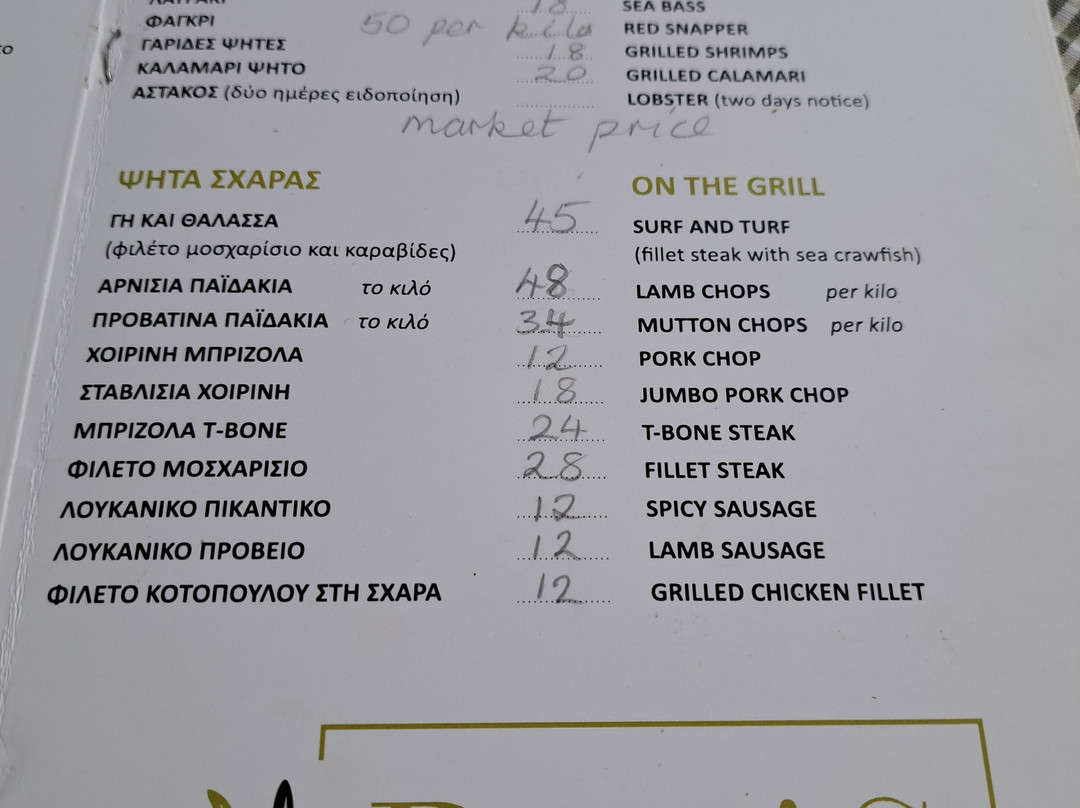 18 SEA BASS
ΦΑΓΚΡΙ 50 per kilo RED SNAPPER
ΓΑΡΙΔΕΣ ΨΗΤΕΣ 18 GRILLED SHRIMPS
ΚΑΛΑΜΑΡΙ ΨΗΤΟ 20 GRILLED CALAMARI
ΑΣΤΑΚΟΣ (δύο ημέρες ειδοποίηση) LOBSTER (two days notice)
market price
ΨΗΤΑ ΣΧΑΡΑΣ ON THE GRILL
ΓΗ ΚΑΙ ΘΑΛΑΣΣΑ 45 SURF AND TURF
(φιλέτο μοσχαρίσιο και καραβίδες) (fillet steak with sea crawfish)
ΑΡΝΙΣΙΑ ΠΑΪΔΑΚΙΑ το κιλό 48 LAMB CHOPS per kilo
ΠΡΟΒΑΤΙΝΑ ΠΑΪΔΑΚΙΑ το κιλό 34 MUTTON CHOPS per kilo
ΧΟΙΡΙΝΗ ΜΠΡΙΖΟΛΑ 12 PORK CHOP
ΣΤΑΒΛΙΣΙΑ ΧΟΙΡΙΝΗ 18 JUMBO PORK CHOP
ΜΠΡΙΖΟΛΑ T-BONE 24 T-BONE STEAK
ΦΙΛΕΤΟ ΜΟΣΧΑΡΙΣΙΟ 28 FILLET STEAK
ΛΟΥΚΑΝΙΚΟ ΠΙΚΑΝΤΙΚΟ 12 SPICY SAUSAGE
ΛΟΥΚΑΝΙΚΟ ΠΡΟΒΕΙΟ 12 LAMB SAUSAGE
ΦΙΛΕΤΟ ΚΟΤΟΠΟΥΛΟΥ ΣΤΗ ΣΧΑΡΑ 12 GRILLED CHICKEN FILLET